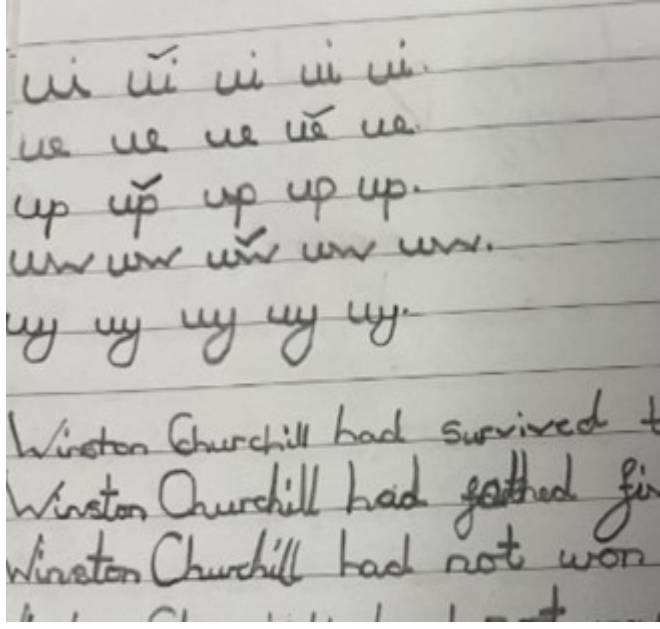 ui ui ui ui ui.
ue ue ue ue ue.
up up up up up.
uw uw uw uw uw.
uy uy uy uy uy.
Winston Churchill had survived t
Winston Churchill had gathed fir
Winston Churchill had not won